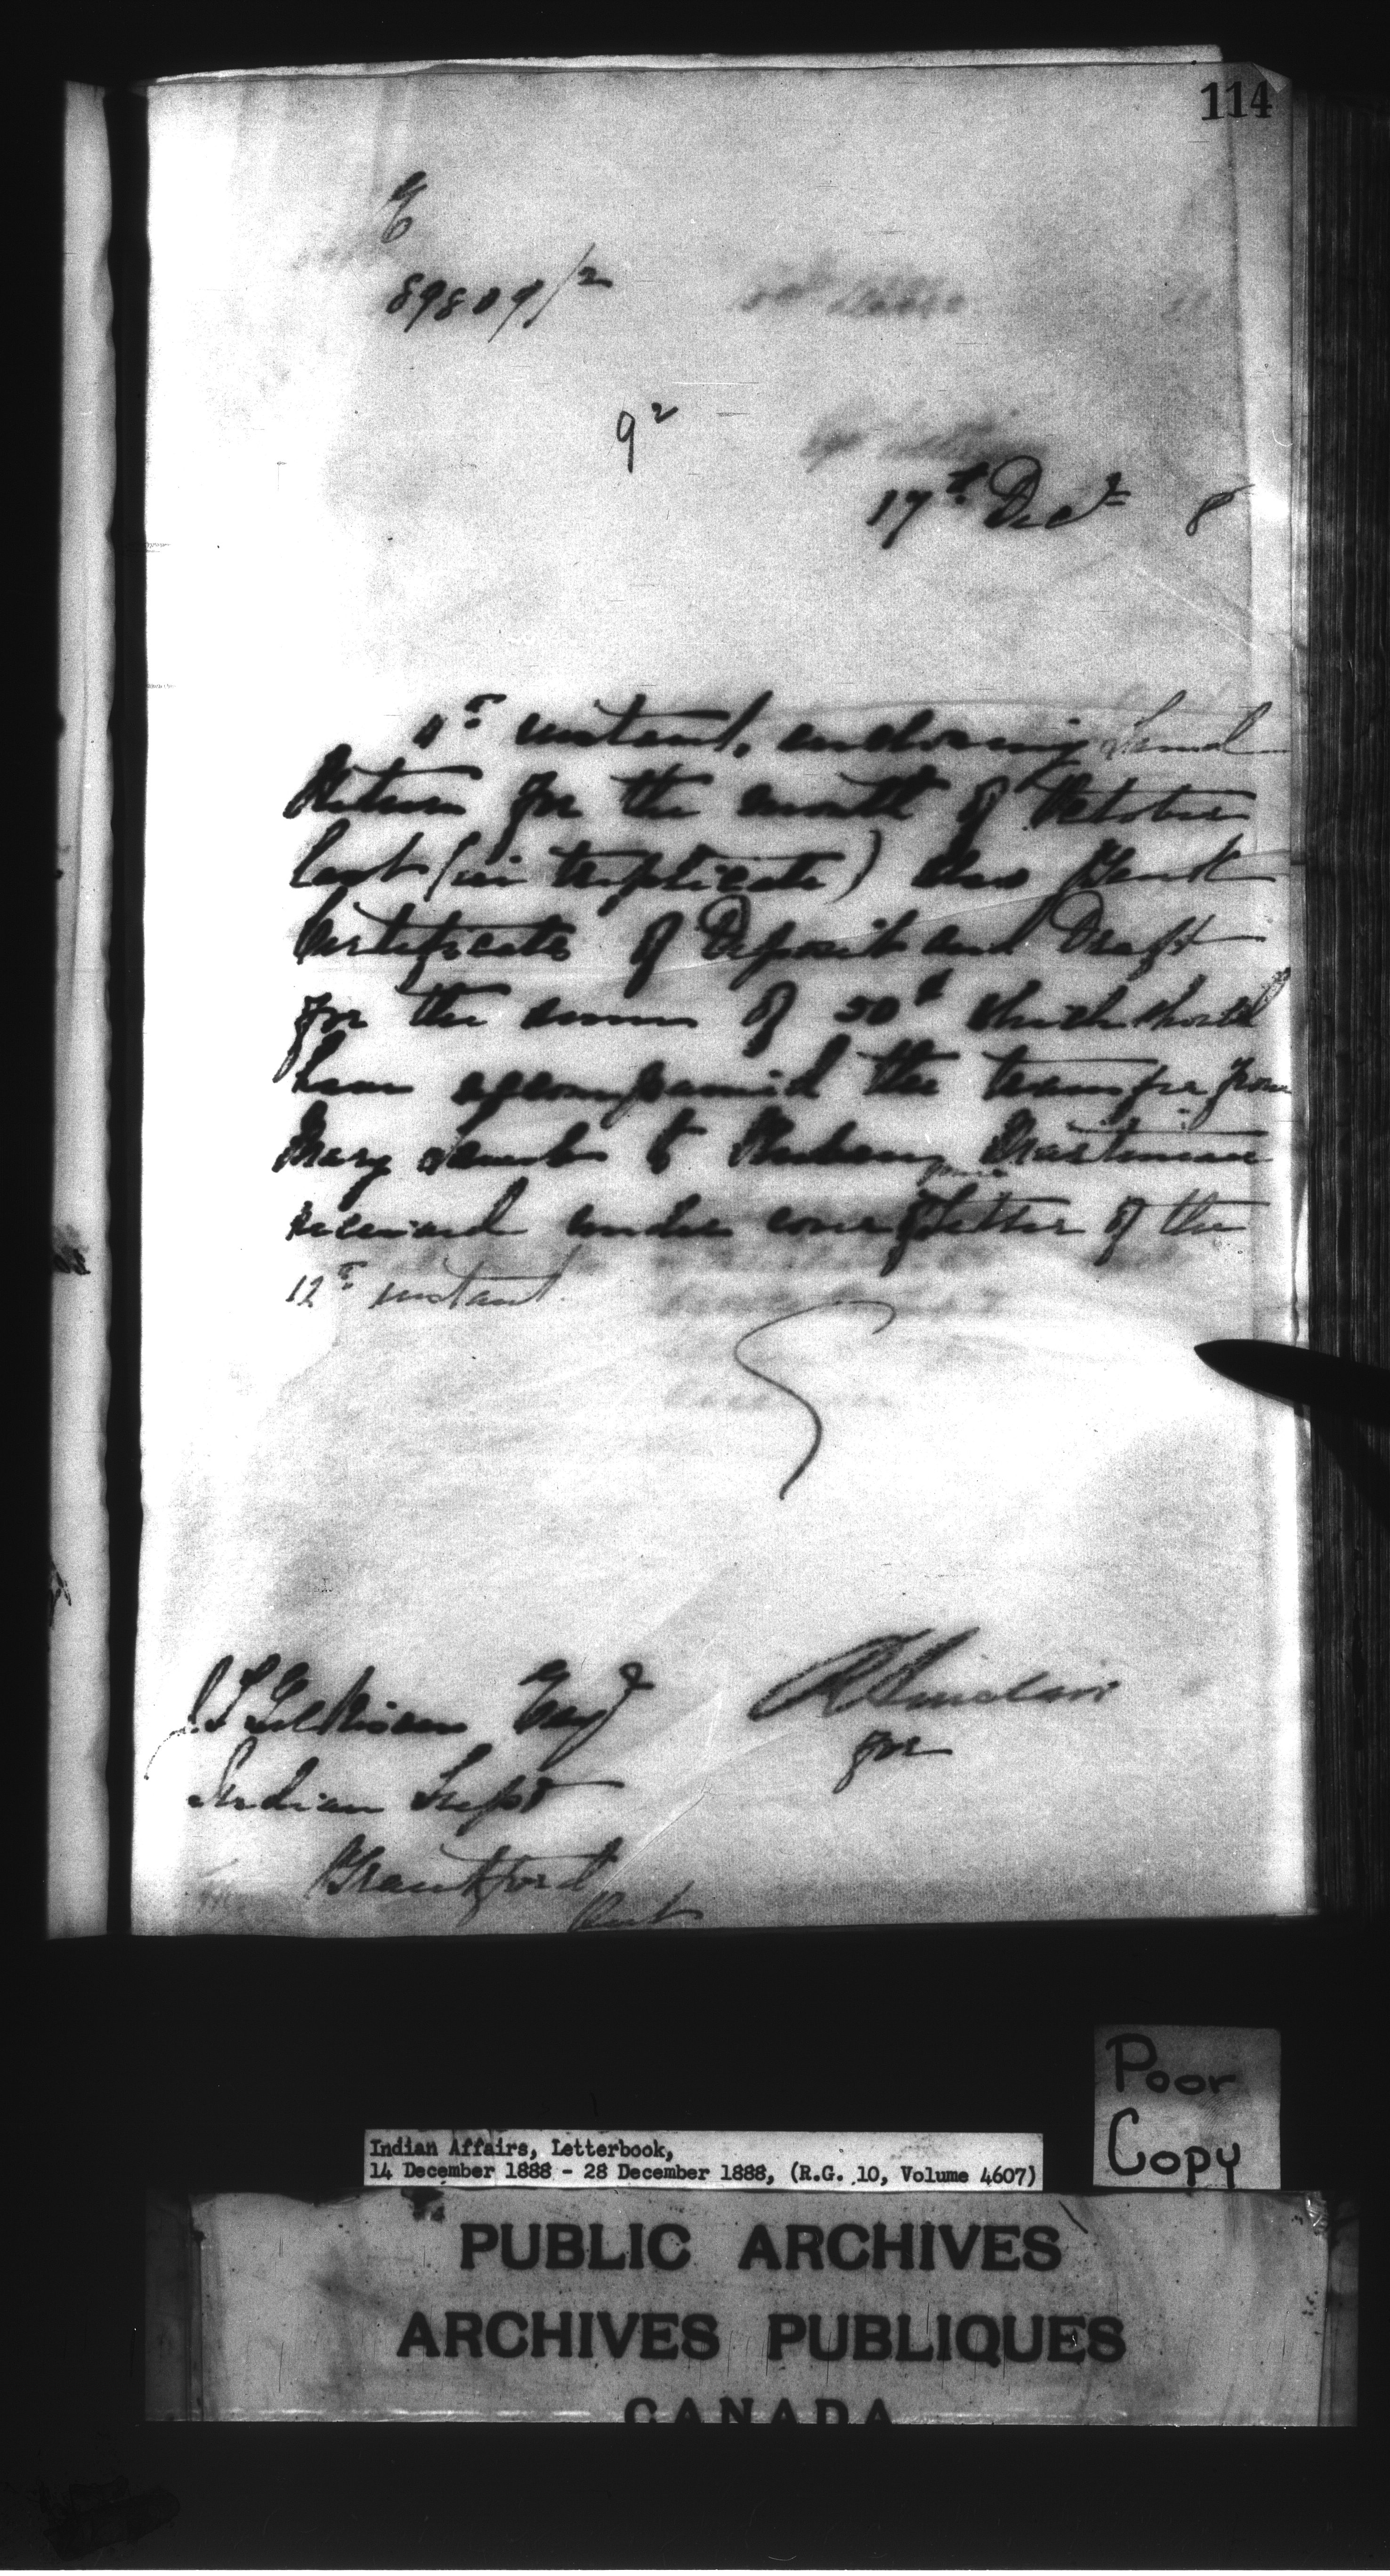 114
89809/2
9²
17th Decr 8
4th instant, enclosing Land
Return for the month of October
last (in triplicate) also Bank
Certificate of Deposit and Draft
for the sum of 50 which should
have accompanied the transfer from
Mary to
received under cover letter of the
12th instant.
J. T. Gilkison Esqr
R Sinclair
for
Indian Supt
Brantford
Ont
Poor
Copy
Indian Affairs, Letterbook,
14 December 1888 - 28 December 1888, (R.G. 10, Volume 4607)
PUBLIC ARCHIVES
ARCHIVES PUBLIQUES
CANADA